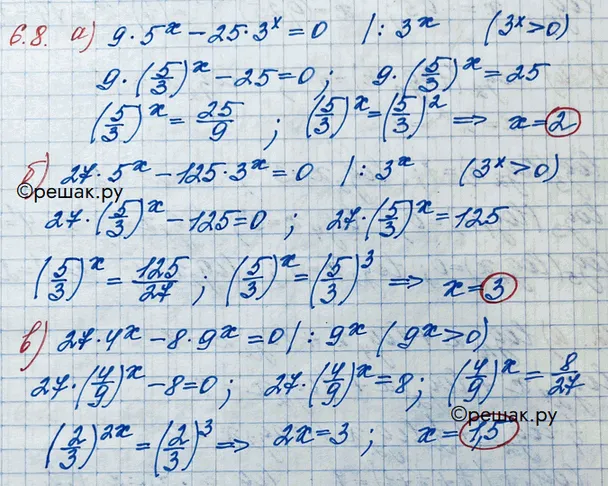 6.8. а) 9·5^x − 25·3^x = 0 |: 3^x (3^x > 0)
9·(5/3)^x − 25 = 0; 9·(5/3)^x = 25
(5/3)^x = 25/9; (5/3)^x = (5/3)^2 ⇒ x = 2
б) 27·5^x − 125·3^x = 0 |: 3^x (3^x > 0)
©решак.ру
27·(5/3)^x − 125 = 0; 27·(5/3)^x = 125
(5/3)^x = 125/27; (5/3)^x = (5/3)^3 ⇒ x = 3
в) 27·4^x − 8·9^x = 0 |: 9^x (9^x > 0)
27·(4/9)^x − 8 = 0; 27·(4/9)^x = 8; (4/9)^x = 8/27
©решак.ру
(2/3)^2x = (2/3)^3 ⇒ 2x = 3; x = 1,5